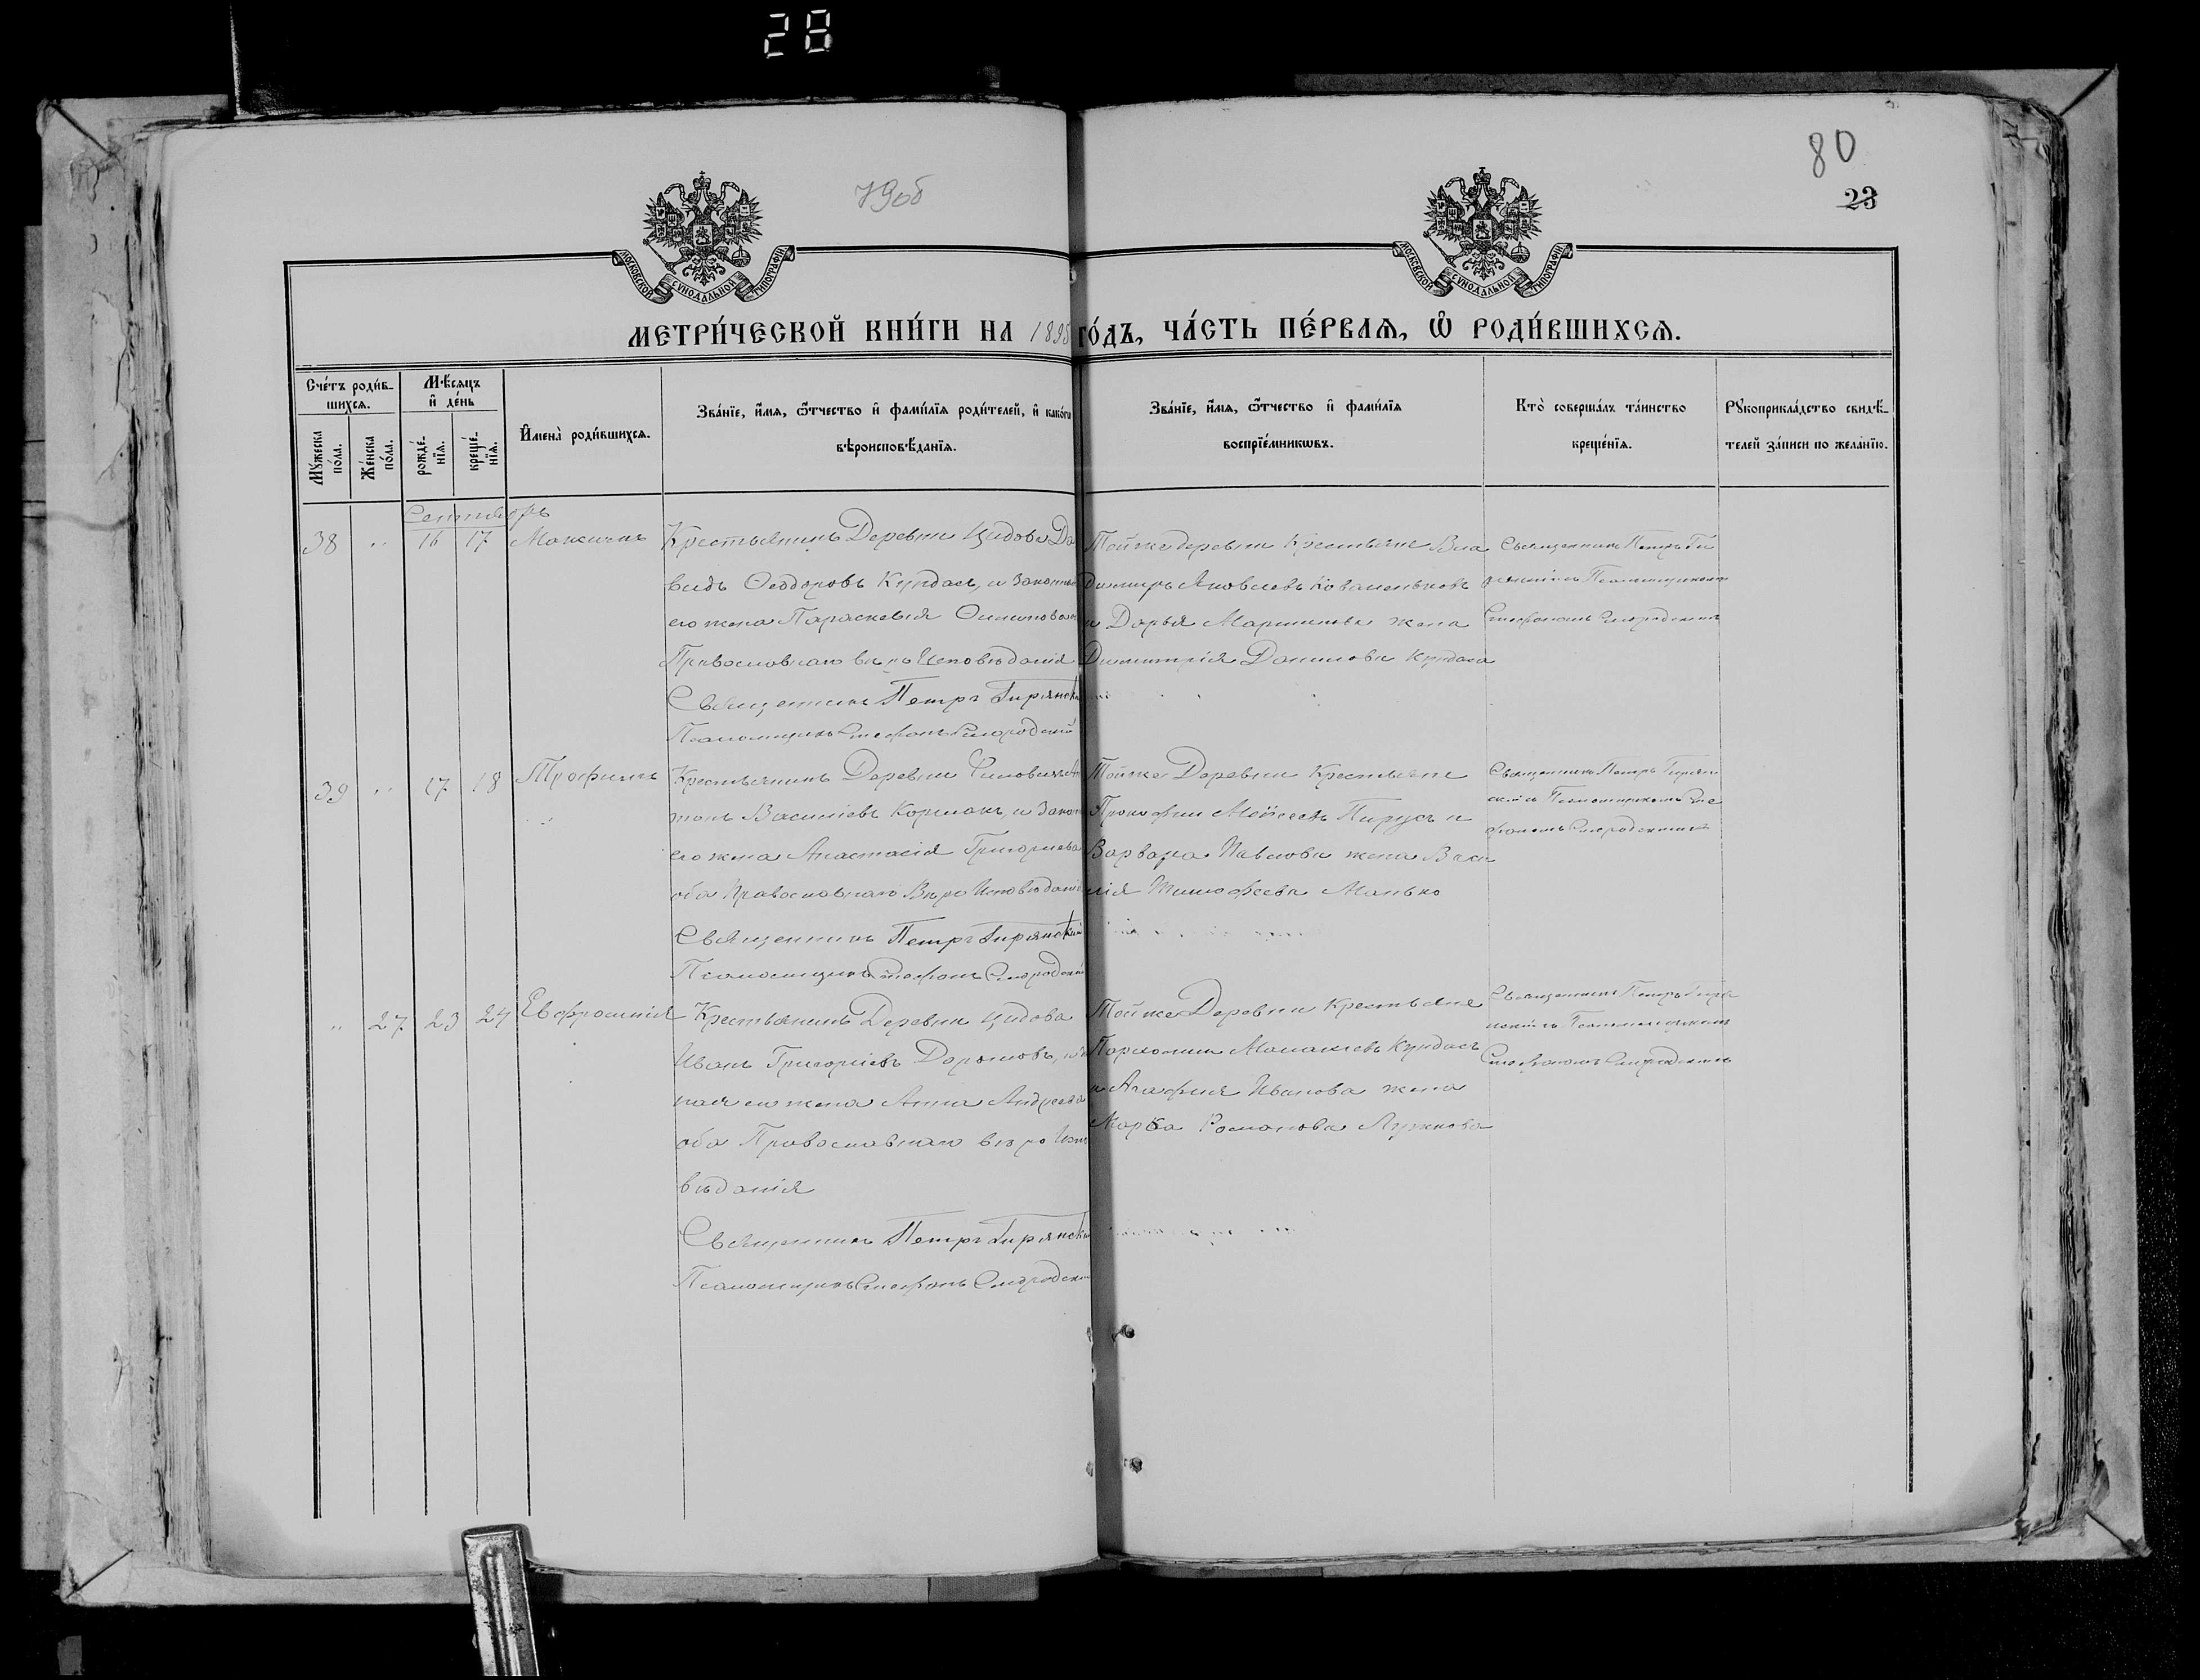 28
79об
80
23
МОСКОВСКОЙ СѴНОДАЛЬНОЙ ТИПОГРАФІИ
МОСКОВСКОЙ СѴНОДАЛЬНОЙ ТИПОГРАФІИ
МЕТРИ́ЧЕСКОЙ КНИ́ГИ НА 1895 ГО́ДЪ, ЧА́СТЬ ПЕ́РВАѦ, Ѿ РОДИ́ВШИХСѦ.
Сче́тъ роди́в-
шихсѧ.
Мѣ́сѧцъ
и де́нь
Мꙋ́жеска
по́ла.
Же́нска
по́ла.
рожде́-
нїѧ.
креще́-
нїѧ.
Имена̀ роди́вшихсѧ.
Зва́нїе, и́мѧ, ѻ́тчество и фами́лїѧ роди́телей, и како́гѡ
вѣроисповѣ́данїѧ.
Зва́нїе, и́мѧ, ѻ́тчество и фами́лїѧ
воспрїе́мникѡвъ.
Кто̀ соверша́лъ та́инство
креще́нїѧ.
Рꙋкоприкла́дство свидѣ́-
телей за́писи по жела́нїю.
Сентябрь
38 " 16 17 Максимъ
Крестьянинъ Деревни Цидова Да
видъ Ѳеодоровъ Кундасъ, и законная
его жена Параскевія Осипова
Православнаго вѣроисповѣданія
Священникъ Петръ Гирянскій
Псаломщикъ Стефанъ Смородскій
Тойже деревни Крестьяне Вла
димиръ Яковлевъ Коваленковъ
и Дарья Мартинова жена
Димитрія Данилова Кундаса
Священникъ Петръ Ги
рянскій съ Псаломщикомъ
Стефаномъ Смородскимъ
39 " 17 18 Трофимъ
Крестьянинъ Деревни
тонъ Василіевъ Кормакъ, и закон
его жена Анастасія Григориева
оба Православнаго Вѣроисповѣданія
Священникъ Петръ Гирянскій
Псаломщикъ Стефанъ Смородскій
Тойже Деревни Крестьяне
Прокофии Мойсеевъ Пирусъ и
Варвара Павлова жена Васи
лія Тимофеева Манько
Священникъ Петръ Гирян
скій съ Псаломщикомъ Сте
фаномъ Смородскимъ
" 27 23 24 Евфросинія
Крестьянинъ Деревни Цидова
Иванъ Григоріевъ
ная его жена Анна Андреева
оба Православнаго вѣроиспо
вѣданія
Священникъ Петръ Гирянскій
Псаломщикъ Стефанъ Смородскій
Тойже Деревни Крестьяне
Кундасъ
и Агафия Иванова жена
Марка Романова Лужкова
Священникъ Петръ Гиря
нскій съ Псаломщикомъ
Стефаномъ Смородскимъ